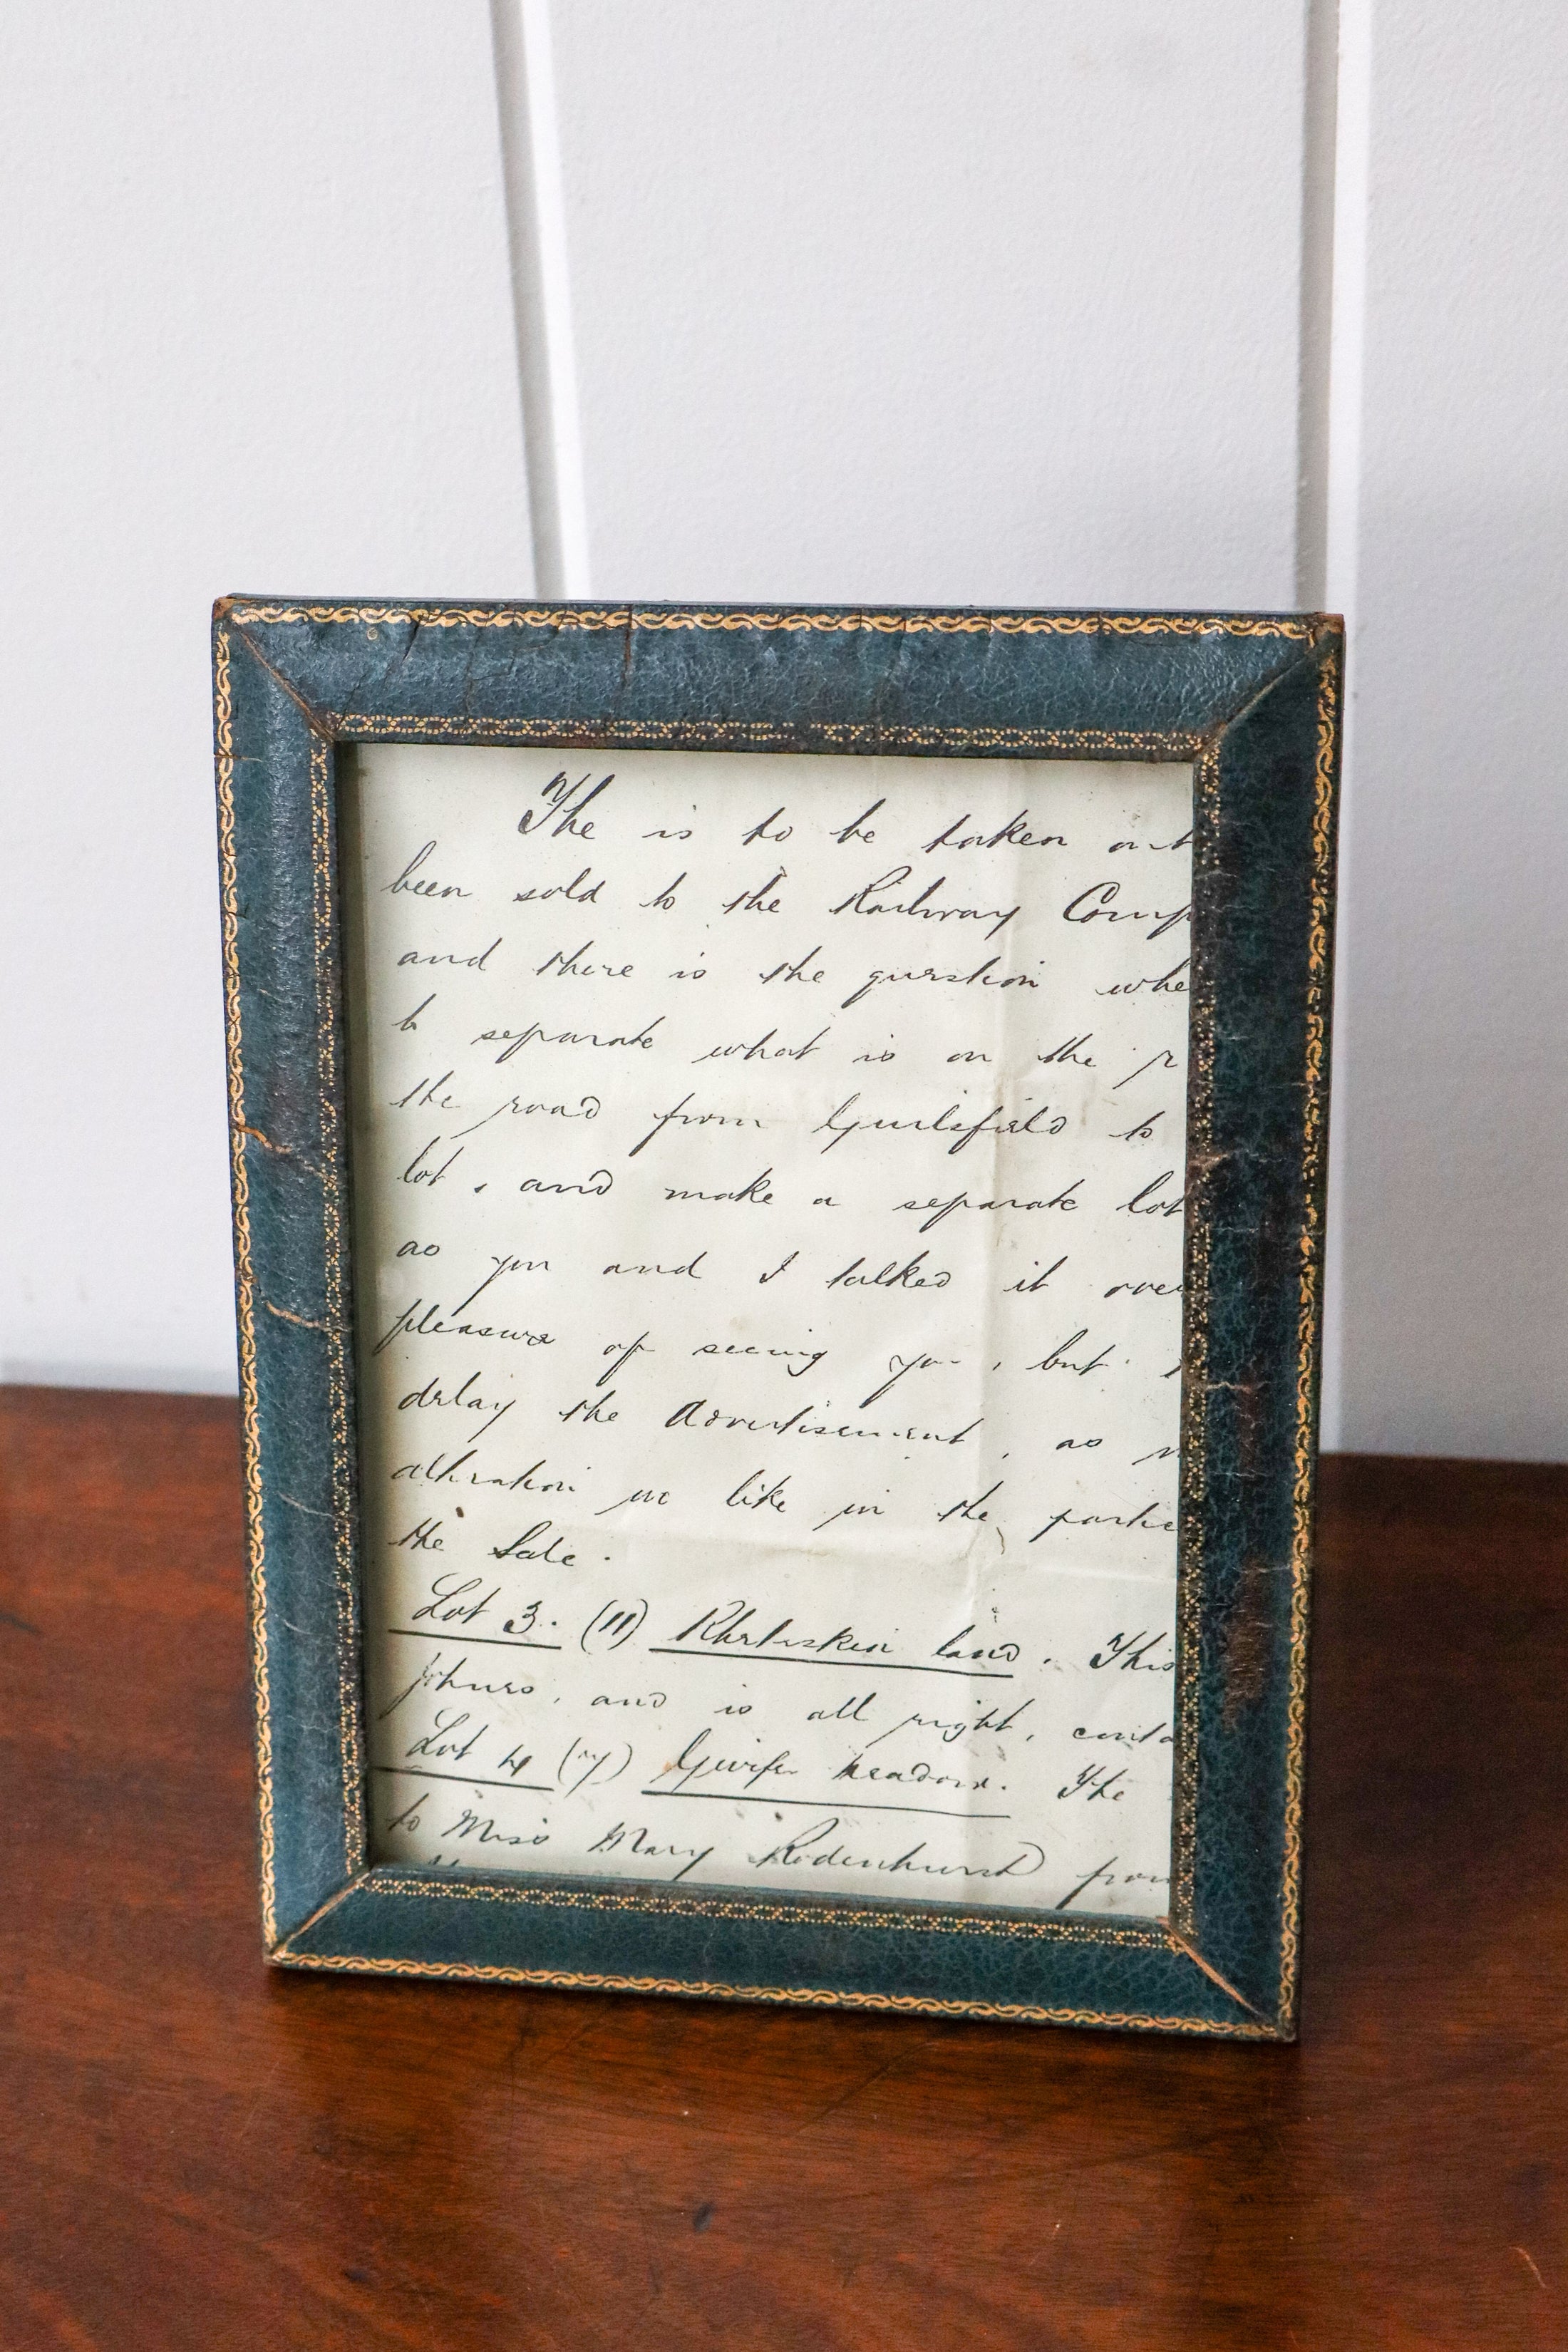 The is to be taken out
been sold to the Railway Comp
and there is the question whe
to separate what is on the r
the road from Guilsfield to
lot, and make a separate lot
as you and I talked it over
pleasure of seeing you, but
delay the Advertisement, as n
alteration we like in the partic
the Sale.
Lot 3. (11) land. This
and is all right, conta
Lot 4 meadow. The
to Miss Mary Rodenhurst from